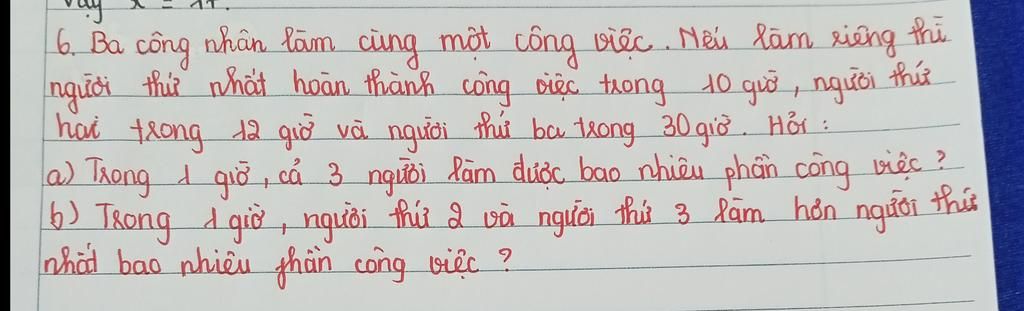 Vậy x = 17.
6. Ba công nhân làm cùng một công việc. Nếu làm riêng thì
người thứ nhất hoàn thành công việc trong 10 giờ, người thứ
hai trong 12 giờ và người thứ ba trong 30 giờ. Hỏi :
a) Trong 1 giờ, cả 3 người làm được bao nhiêu phần công việc ?
b) Trong 1 giờ, người thứ 2 và người thứ 3 làm hơn người thứ
nhất bao nhiêu phần công việc ?